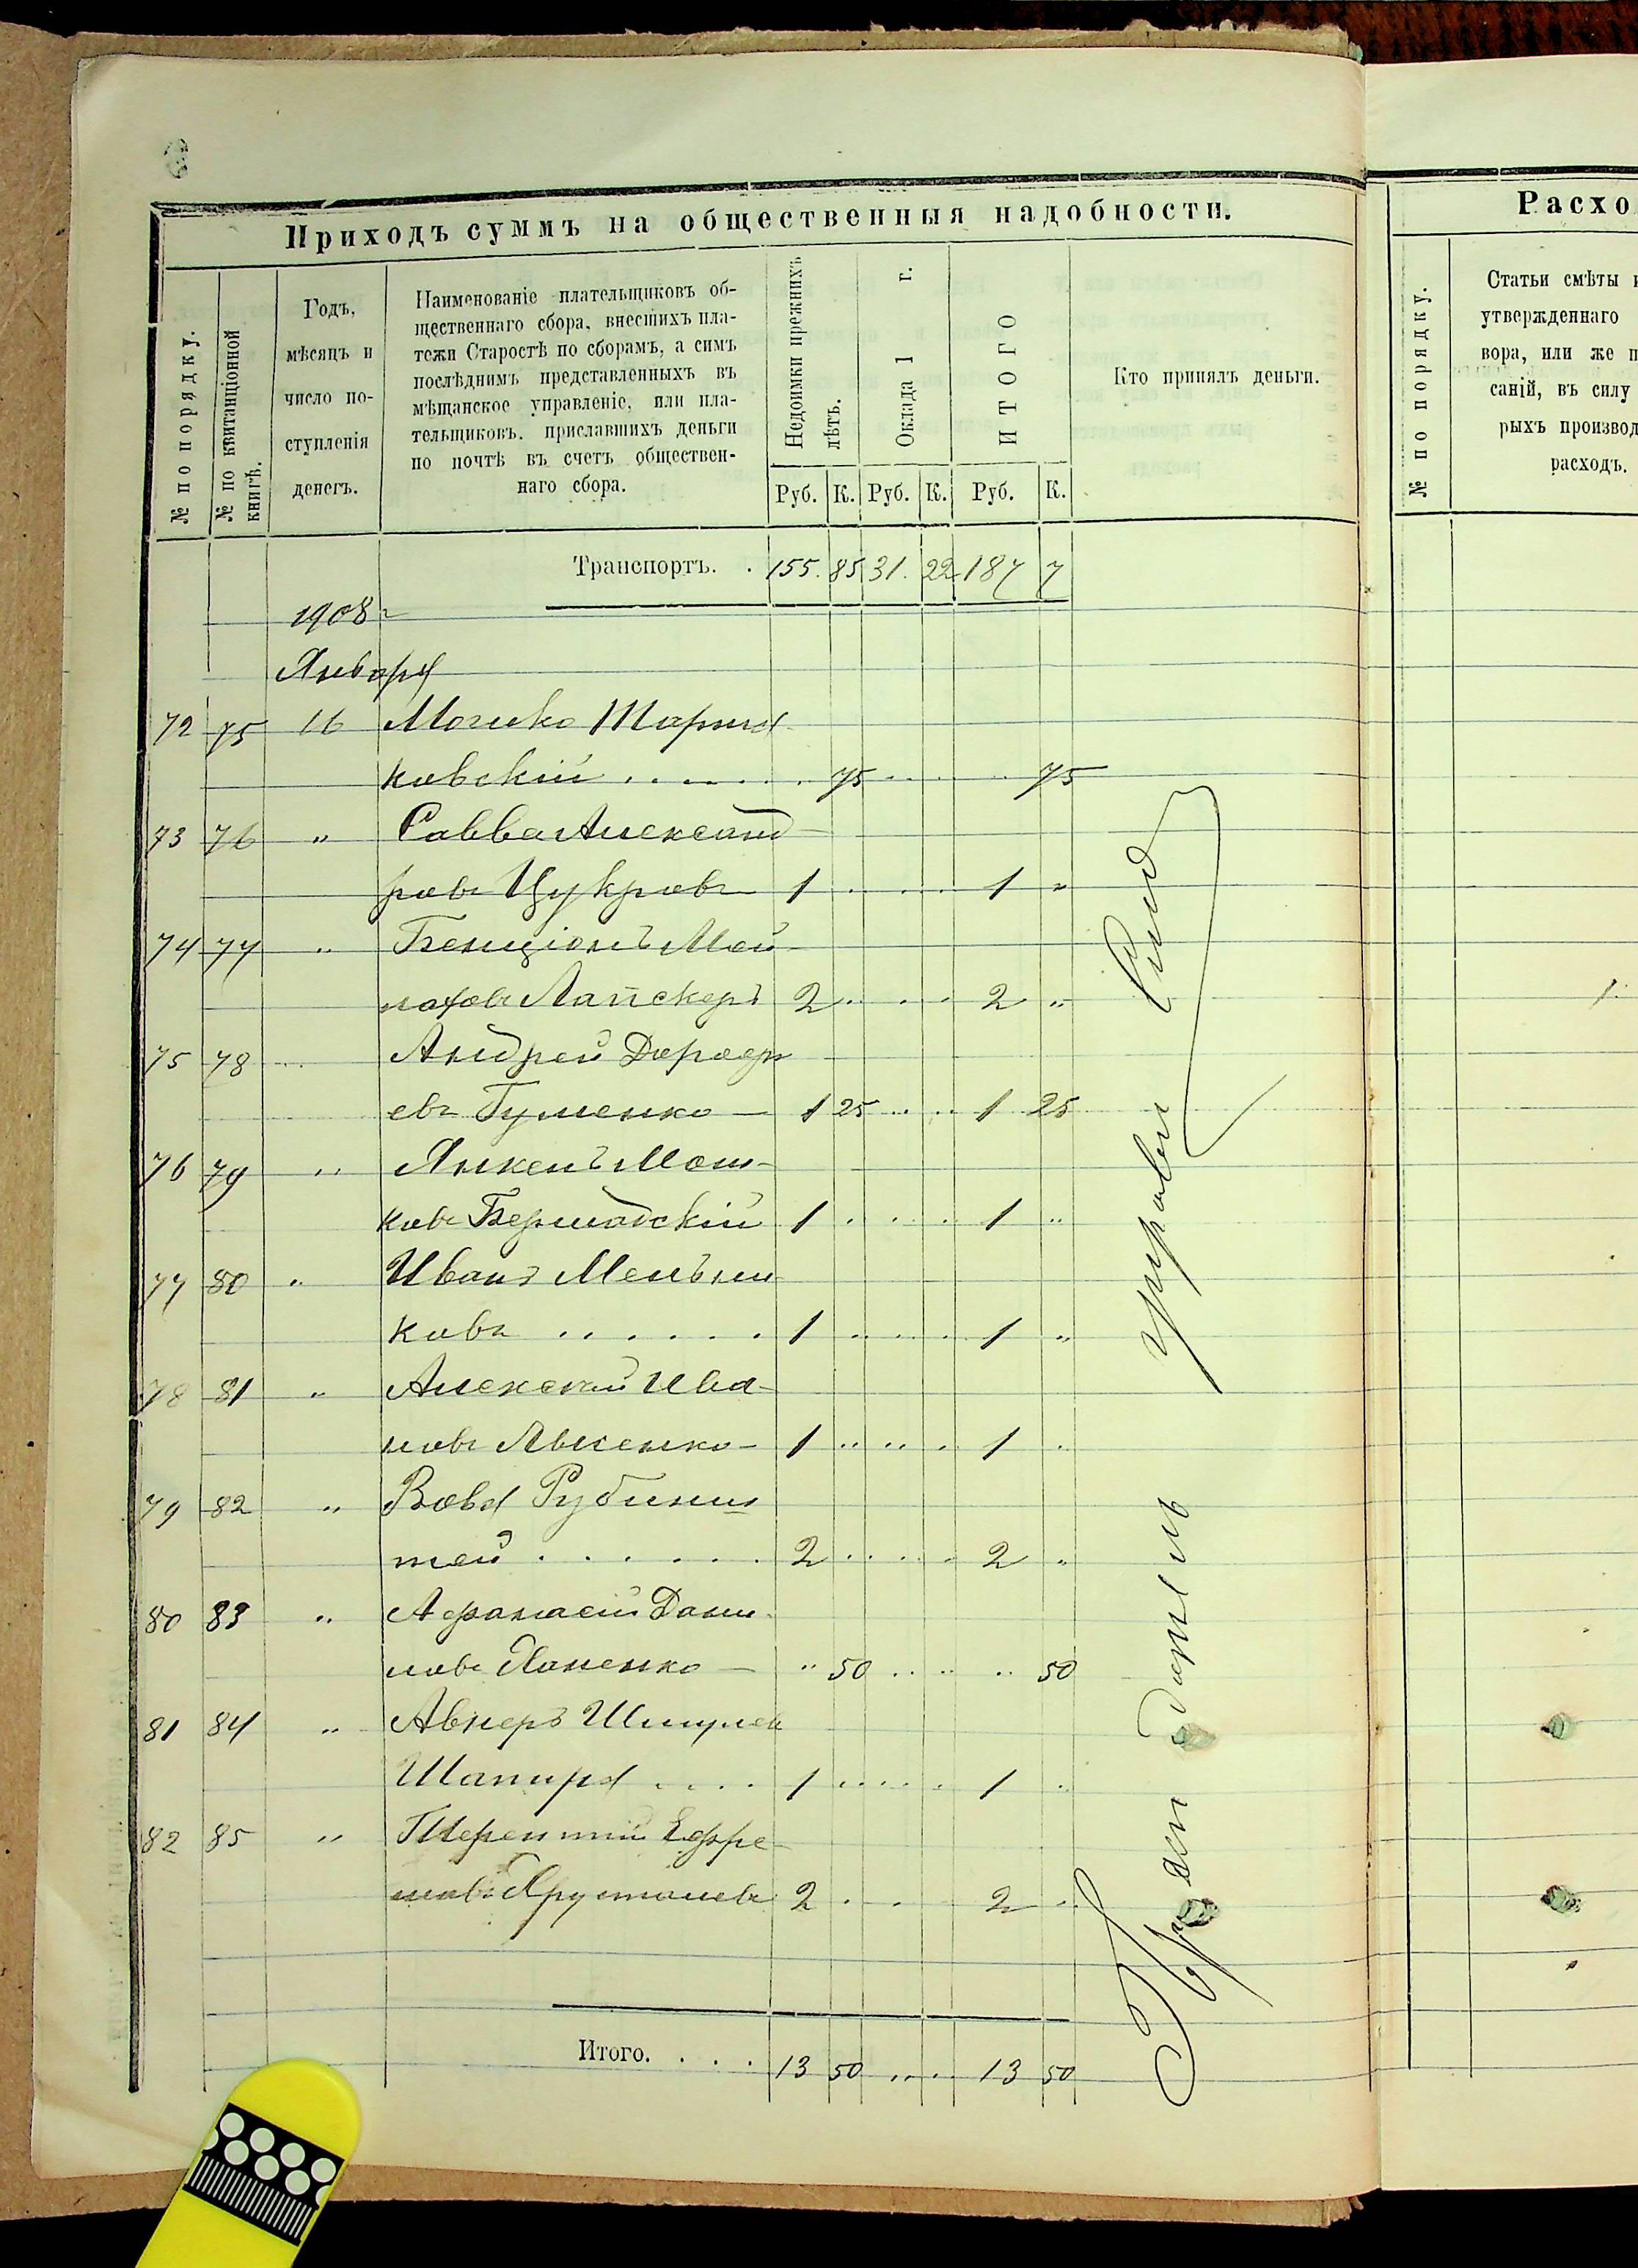 Приходъ суммъ на общественныя надобности.
№ по порядку.
№ по квитанціонной
книгѣ.
Годъ,
мѣсяцъ и
число по-
ступленія
денегъ.
Наименованіе плательщиковъ об-
щественнаго сбора, внесшихъ пла-
тежи Старостѣ по сборамъ, а симъ
послѣднимъ представленныхъ въ
мѣщанское управленіе, или пла-
тельщиковъ. приславшихъ деньги
по почтѣ въ счетъ обществен-
наго сбора.
Недоимки прежнихъ
лѣтъ.
Оклада 1 г.
ИТОГО
Руб. К. Руб. К. Руб. К.
Кто принялъ деньги.
Транспортъ. . 155. 85 31. 22 187 7
1908 г
Января
72 75 16
ковскій . . . . . . 75 . . . . 75
73 76 " Савва Александ
ровъ Цукровъ 1 . . . . 1 "
74 77 " Бенціонъ Мой
Лапскеръ 2 . . . . 2 "
75 78 " Андрей Дороф
евъ Гуменко — 1 25 . . . . 1 25
76 79 " Янкель Мош-
ковъ Бершадскій 1 . . . . 1 "
77 80 " Иванъ Мельни
ковъ . . . . . . 1 . . . . 1 "
78 81 " Алексѣй Ива-
новъ Лысенко — 1 . . . . 1 "
79 82 " Вовя Рубинш
тей . . . . . . 2 . . . . 2 "
80 83 " Афанасій Дани
ловъ — " 50 . . . . 50
81 84 " Авнеръ Шмулев
Шапиря . . . . 1 . . . . 1 "
82 85 " Терентій Ефре
мовъ Хрусталевъ 2 . . . 2 "
Итого. . . . 13 50 . . . . 13 50
Расхо
№ по порядку.
Статьи смѣты и
утвержденнаго
вора, или же п
саній, въ силу
рыхъ производ
расходъ.